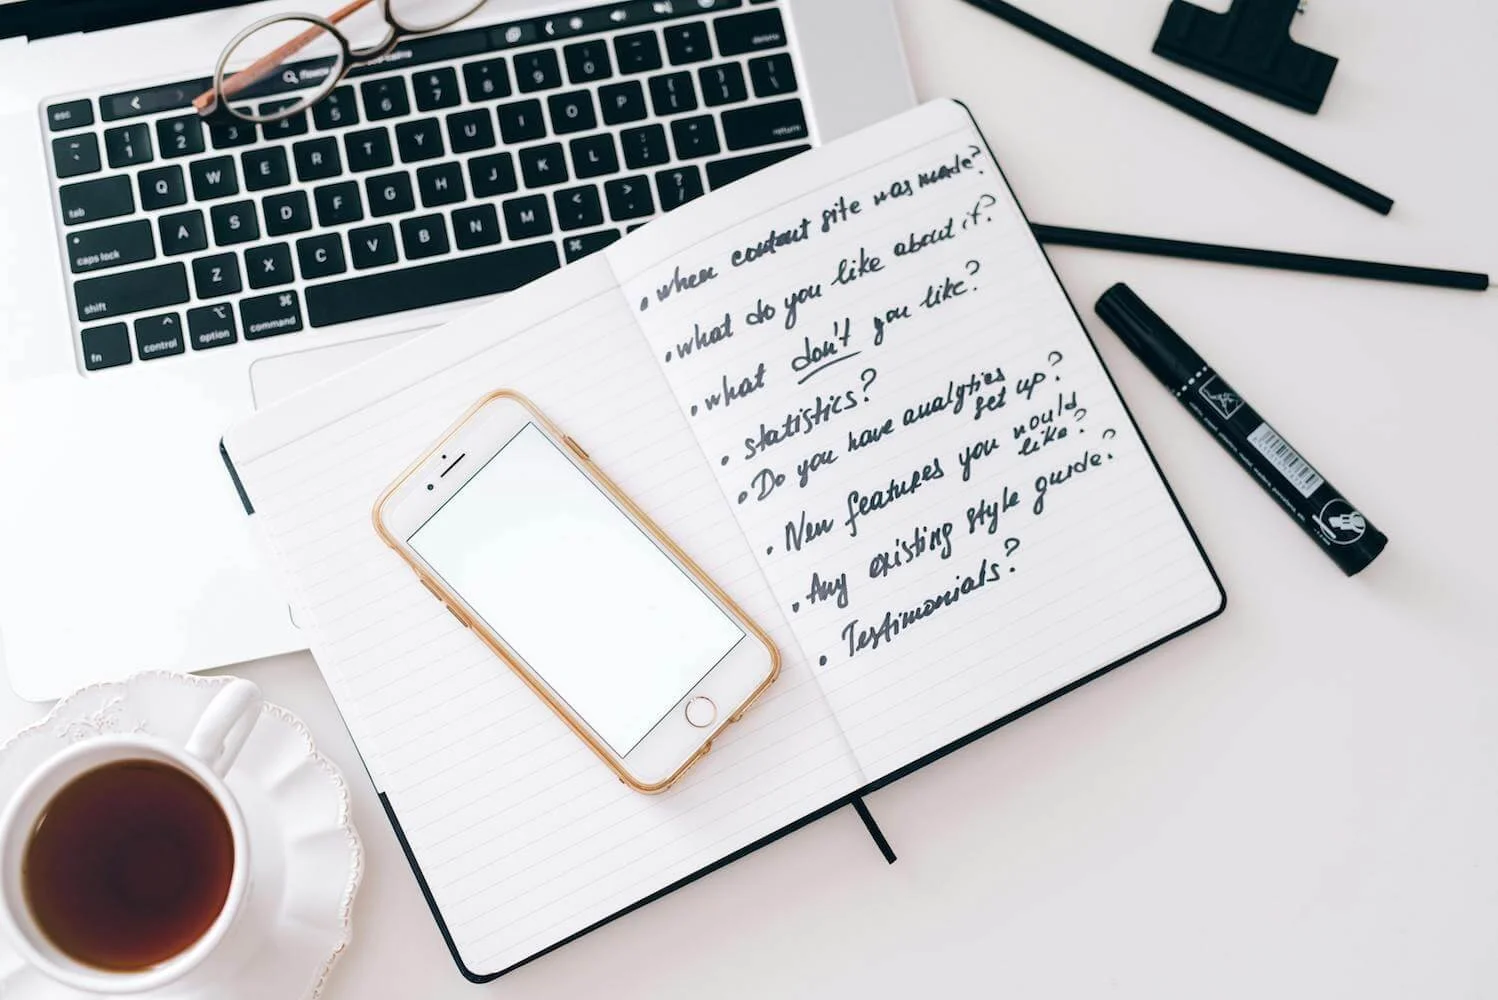 • when content site was made?
• what do you like about it?
• what don't you like?
• statistics?
• Do you have analytics
set up?
• New features you would
like?
• Any existing style guide?
• Testimonials?
esc
~
! 1
@ 2
3
4
5
6
7
8
9
0
delete
tab
Q W E R T Y U I O P { [ } ] | \
caps lock
A S D F G H J K L : ; " '
return
shift
Z X C V B N M < , > . ? /
fn
control
option
⌘
command
⌘